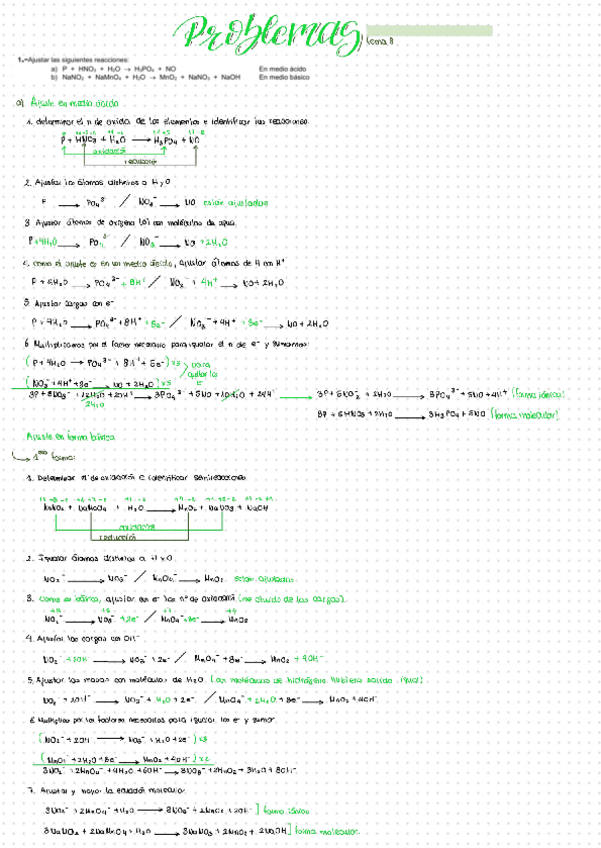 Problemas, tema 8
1.-Ajustar las siguientes reacciones:
a) P + HNO₃ + H₂O → H₃PO₄ + NO En medio ácido
b) NaNO₂ + NaMnO₄ + H₂O → MnO₂ + NaNO₃ + NaOH En medio básico
a) Ajuste en medio ácido
1. determinar el n de oxida. de los elementos e identificar las reacciones.
P + HNO₃ + H₂O → H₃PO₄ + NO
oxidación
reducción
2. Ajustar los átomos distintos a H y O
P → PO₄³⁻ / NO₃⁻ → NO están ajustados
3. Ajustar átomos de oxígeno (O) con moléculas de agua.
P + 4H₂O → PO₄³⁻ / NO₃⁻ → NO + 2H₂O
4. como el ajuste es en un medio ácido, ajustar átomos de H con H⁺
P + 4H₂O → PO₄³⁻ + 8H⁺ / NO₃⁻ + 4H⁺ → NO + 2H₂O
5. Ajustar cargas con e⁻
P + 4H₂O → PO₄³⁻ + 8H⁺ + 5e⁻ / NO₃⁻ + 4H⁺ + 3e⁻ → NO + 2H₂O
6. Multiplicamos por el factor necesario para igualar el n de e⁻ y sumamos:
(P + 4H₂O → PO₄³⁻ + 8H⁺ + 5e⁻) x3 para ajustar los e⁻
(NO₃⁻ + 4H⁺ + 3e⁻ → NO + 2H₂O) x5
3P + 5NO₃⁻ + 12H₂O + 20H⁺ → 3PO₄³⁻ + 5NO + 10H₂O + 24H⁺ → 3P + 5NO₃⁻ + 2H₂O → 3PO₄³⁻ + 5NO + 4H⁺ (forma iónica)
2H₂O
3P + 5HNO₃ + 2H₂O → 3H₃PO₄ + 5NO (forma molecular)
Ajuste en forma básica
1ᵉʳᵃ forma:
1. Determinar nº de oxidación e identificar semireacciones
NaNO₂ + NaMnO₄ + H₂O → MnO₂ + NaNO₃ + NaOH
oxidación
reducción
2. Igualar átomos distintos a H y O.
NO₂⁻ → NO₃⁻ / MnO₄⁻ → MnO₂ están ajustados
3. como es básica, ajustar en e⁻ los nº de oxidación (me olvido de las cargas).
NO₂⁻ → NO₃⁻ + 2e⁻ / MnO₄⁻ + 3e⁻ → MnO₂
4. Ajustar las cargas con OH⁻
NO₂⁻ + 2OH⁻ → NO₃⁻ + 2e⁻ / MnO₄⁻ + 3e⁻ → MnO₂ + 4OH⁻
5. Ajustar las masas con moléculas de H₂O. (con moléculas de hidrógeno hubiera salido igual).
NO₂⁻ + 2OH⁻ → NO₃⁻ + H₂O + 2e⁻ / MnO₄⁻ + 2H₂O + 3e⁻ → MnO₂ + 4OH⁻
6. Multiplico por los factores necesarios para igualar los e⁻ y sumar.
(NO₂⁻ + 2OH⁻ → NO₃⁻ + H₂O + 2e⁻) x3
(MnO₄⁻ + 2H₂O + 3e⁻ → MnO₂ + 4OH⁻) x2
3NO₂⁻ + 2MnO₄⁻ + 4H₂O + 6OH⁻ → 3NO₃⁻ + 2MnO₂ + 3H₂O + 8OH⁻
7. Ajustar y hacer la ecuación molecular
3NO₂⁻ + 2MnO₄⁻ + H₂O → 3NO₃⁻ + 2MnO₂ + 2OH⁻ ] forma iónica
3NaNO₂ + 2NaMnO₄ + H₂O → 3NaNO₃ + 2MnO₂ + 2NaOH ] forma molecular.